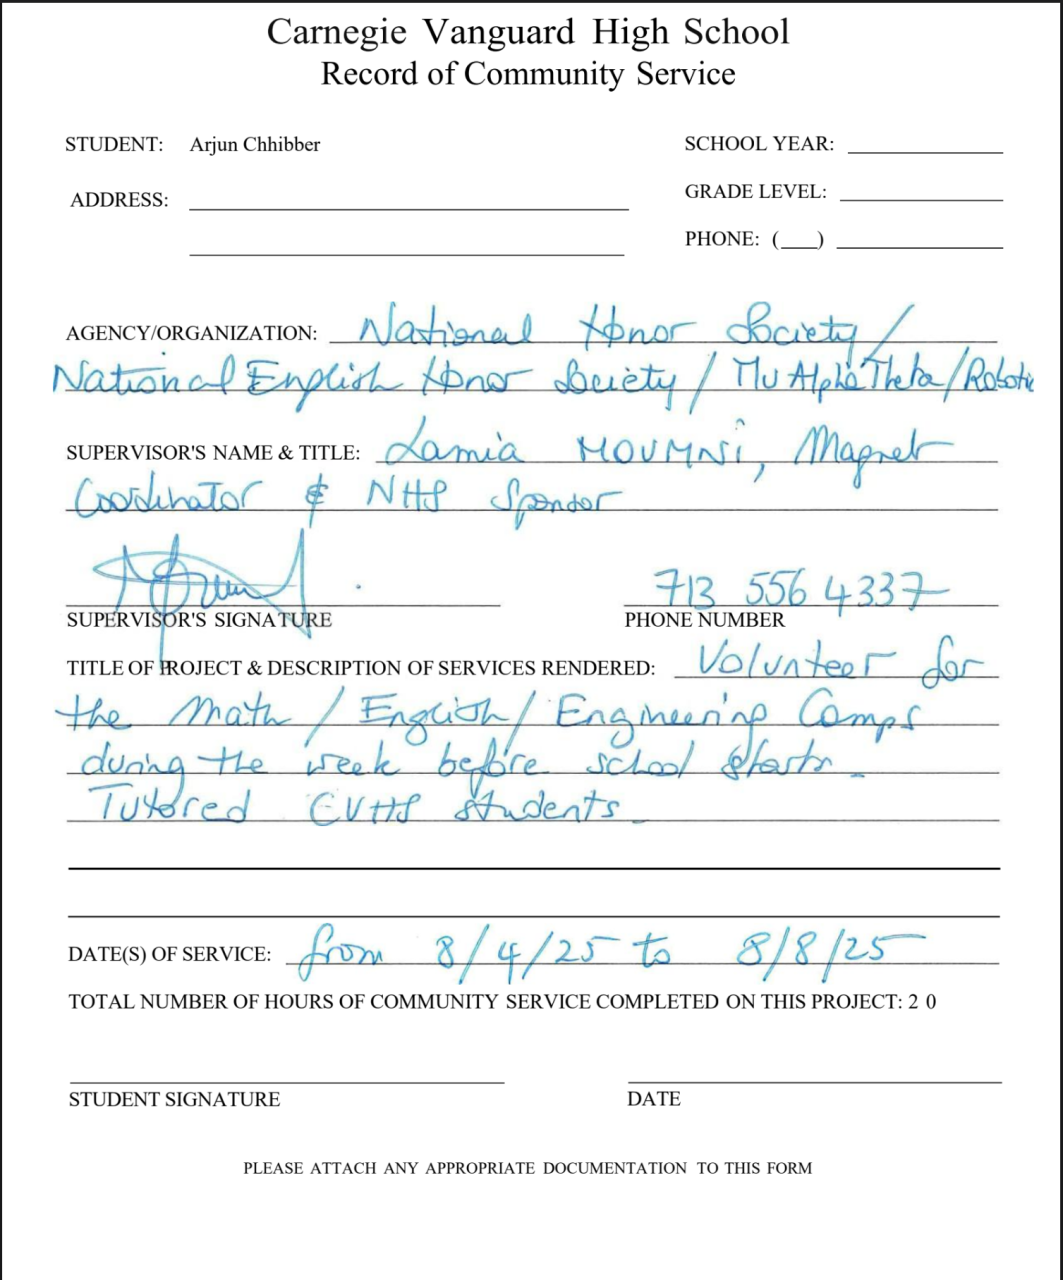 Carnegie Vanguard High School
Record of Community Service
STUDENT: Arjun Chhibber
SCHOOL YEAR:
ADDRESS:
GRADE LEVEL:
PHONE: (___)
AGENCY/ORGANIZATION: National Honor Society /
National English Honor Society / Mu Alpha Theta / Robotic
SUPERVISOR'S NAME & TITLE: Lamia MOUMNi, Magnet
Coordinator & NHS Sponsor
713 556 4337
SUPERVISOR'S SIGNATURE
PHONE NUMBER
TITLE OF PROJECT & DESCRIPTION OF SERVICES RENDERED: Volunteer for
the Math / English / Engineering Camps
during the week before school starts.
Tutored CVHS students.
DATE(S) OF SERVICE: from 8/4/25 to 8/8/25
TOTAL NUMBER OF HOURS OF COMMUNITY SERVICE COMPLETED ON THIS PROJECT: 2 0
STUDENT SIGNATURE
DATE
PLEASE ATTACH ANY APPROPRIATE DOCUMENTATION TO THIS FORM